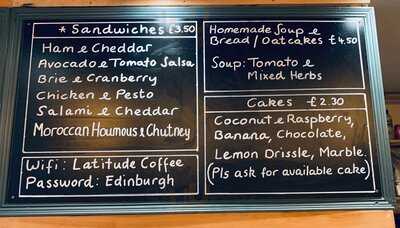 * Sandwiches £3.50
Ham & Cheddar
Avocado & Tomato Salsa
Brie & Cranberry
Chicken & Pesto
Salami & Cheddar
Moroccan Houmous & Chutney
Wifi: Latitude Coffee
Password: Edinburgh
Homemade Soup &
Bread/Oatcakes £4.50
Soup: Tomato &
Mixed Herbs
Cakes £2.30
Coconut & Raspberry,
Banana, Chocolate,
Lemon Drissle, Marble.
(Pls ask for available cake)